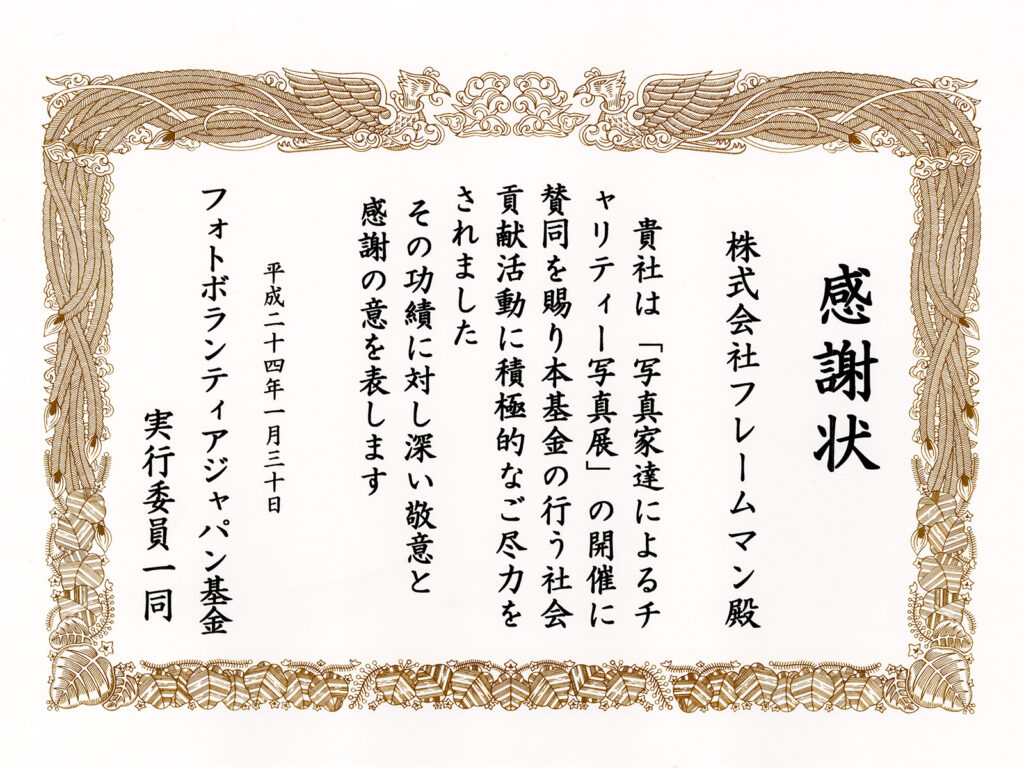 感謝状
株式会社フレームマン殿
貴社は「写真家達によるチ
ャリティー写真展」の開催に
賛同を賜り本基金の行う社会
貢献活動に積極的なご尽力を
されました
その功績に対し深い敬意と
感謝の意を表します
平成二十四年一月三十日
フォトボランティアジャパン基金
実行委員一同